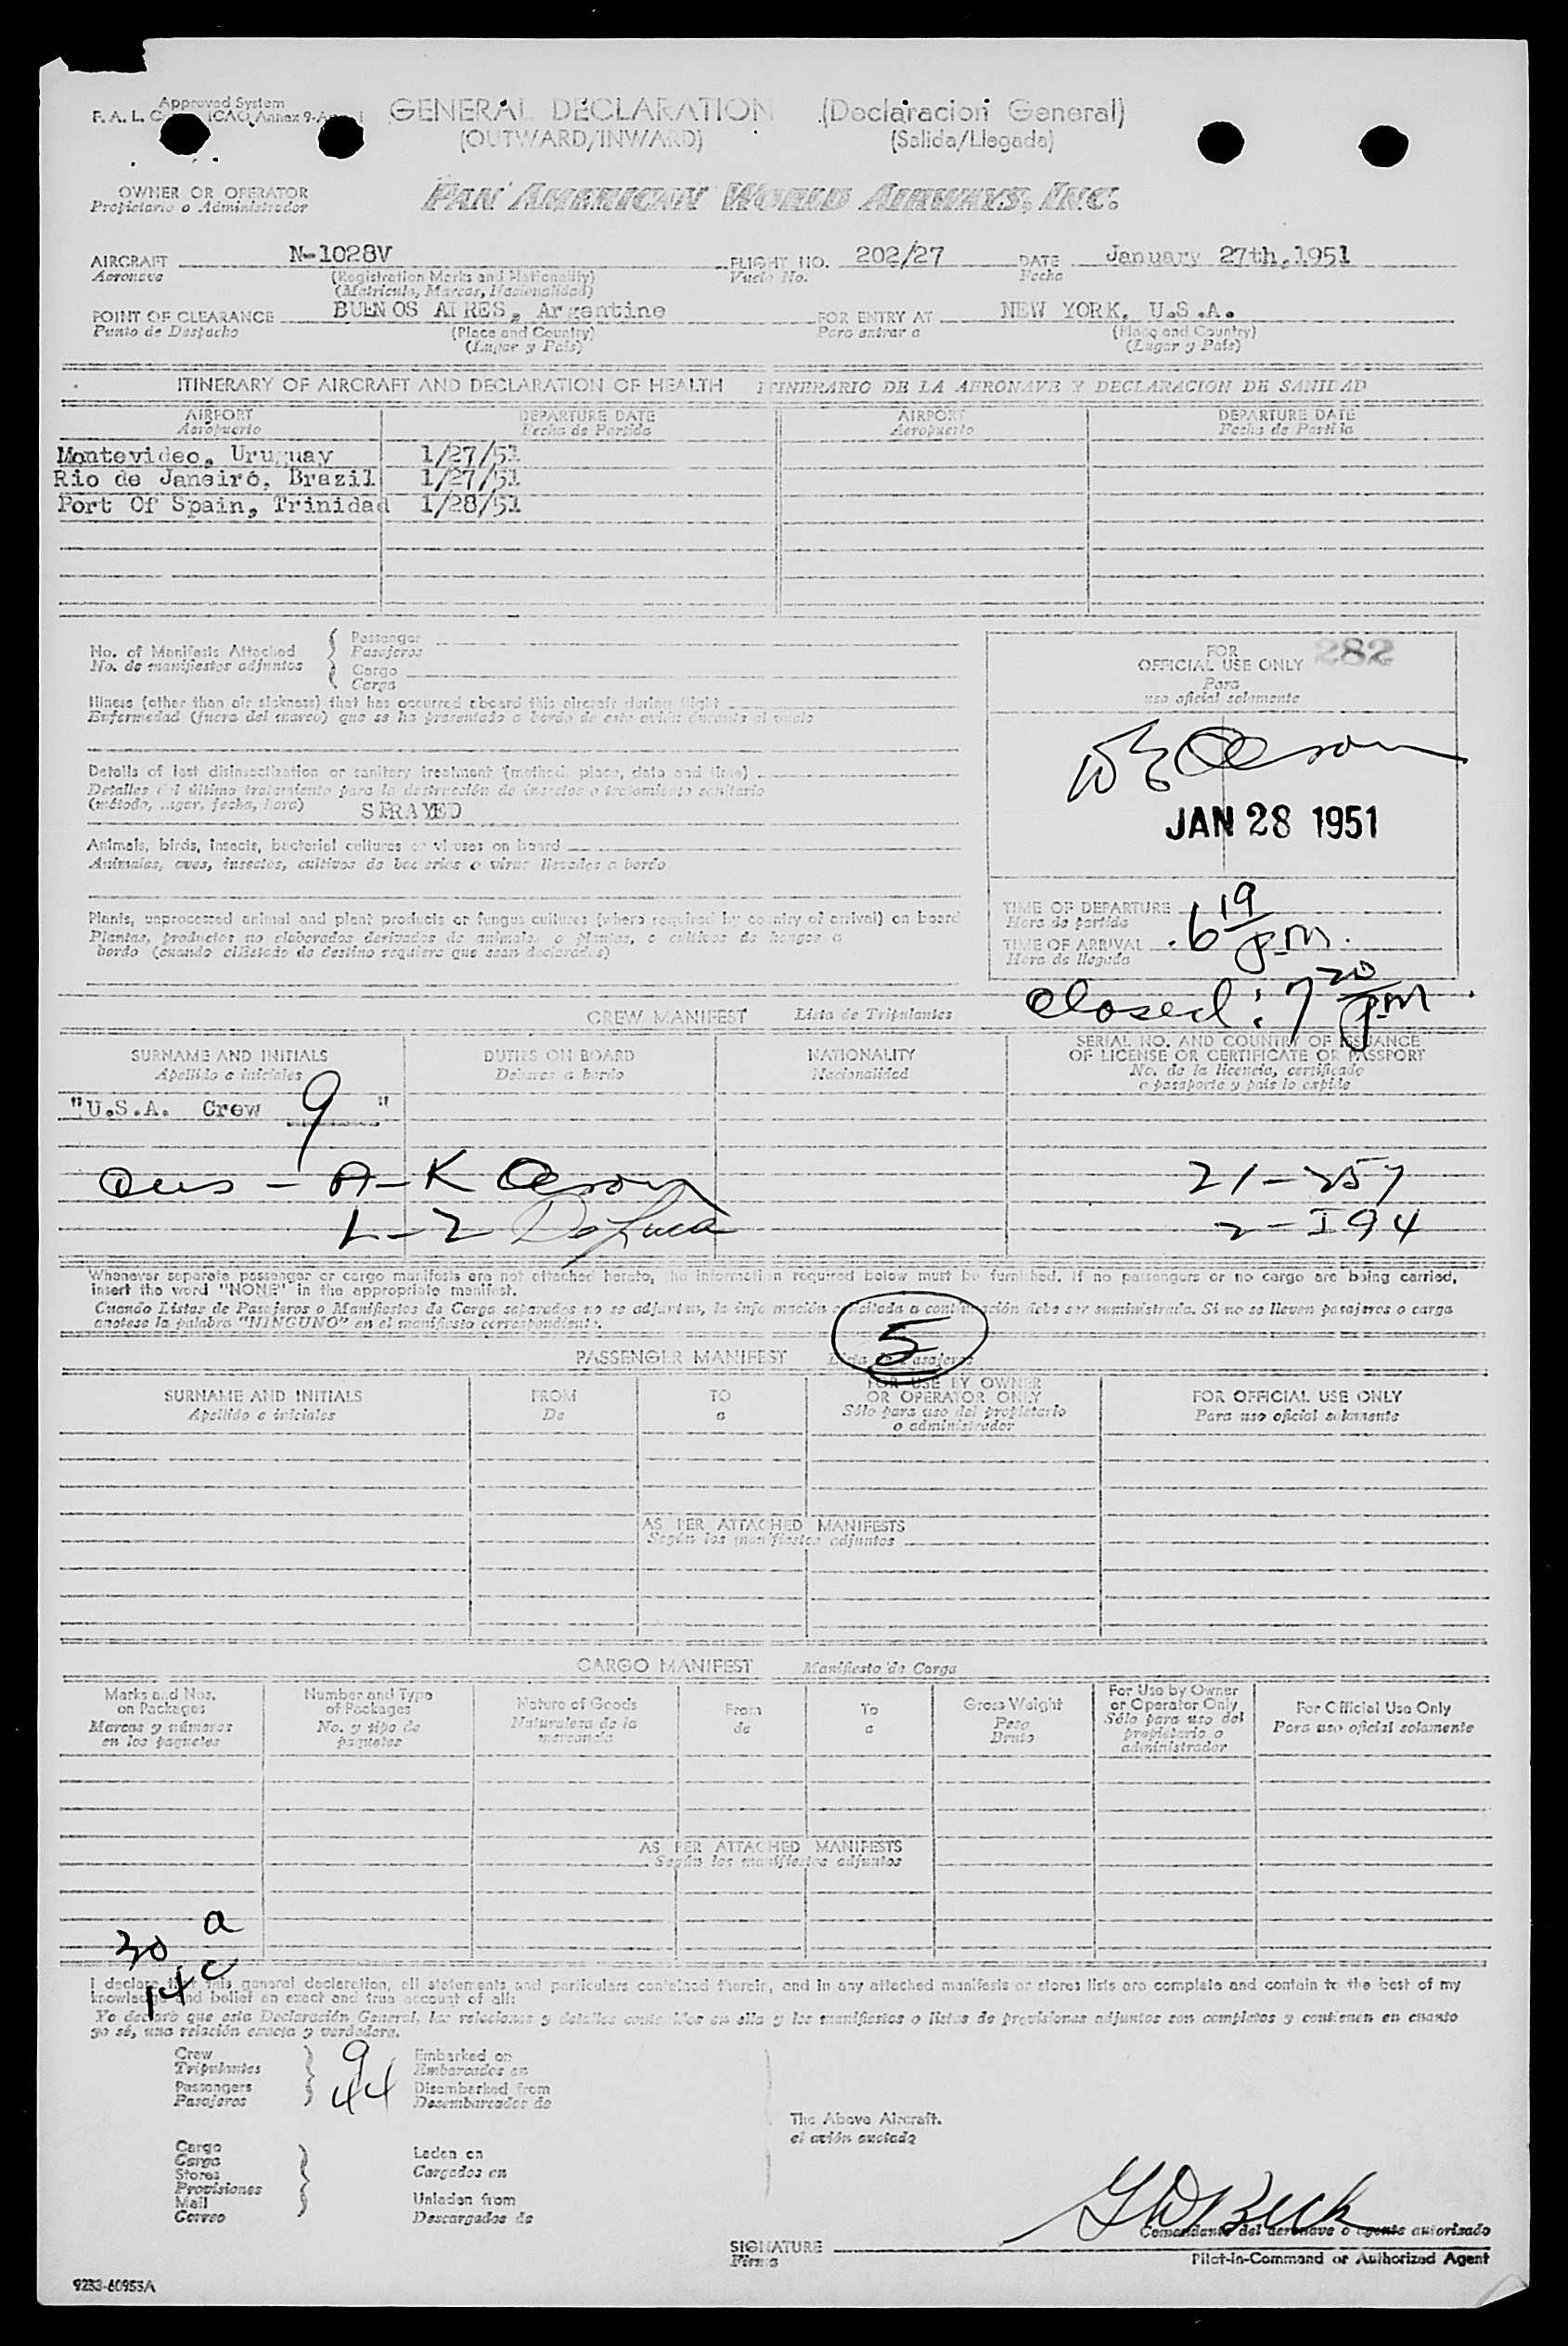 Approved System
GENERAL DECLARATION (Declaracion General)
F. A. L. ICAO Annex 9-
(OUTWARD/INWARD) (Salida/Llegada)
OWNER OR OPERATOR
Propietario o Administrador
PAN AMERICAN WORLD AIRWAYS, INC.
AIRCRAFT N-1028V FLIGHT NO. 202/27 DATE January 27th, 1951
Aeronave (Registration Marks and Nationality) Vuelo No. Fecha
(Matricula, Marcas, Nacionalidad)
POINT OF CLEARANCE BUENOS AIRES, Argentine FOR ENTRY AT NEW YORK, U.S.A.
Punto de Despacho (Place and Country) Para entrar a (Place and Country)
(Lugar y Pais) (Lugar y Pais)
ITINERARY OF AIRCRAFT AND DECLARATION OF HEALTH ITINERARIO DE LA AERONAVE Y DECLARACION DE SANIDAD
AIRPORT DEPARTURE DATE AIRPORT DEPARTURE DATE
Aeropuerto Fecha de Partida Aeropuerto Fecha de Partida
Montevideo, Uruguay 1/27/51
Rio de Janeiro, Brazil 1/27/51
Port Of Spain, Trinidad 1/28/51
No. of Manifests Attached
No. de manifiestos adjuntos
Passenger
Pasajeros
Cargo
Carga
Illness (other than air sickness) that has occurred aboard this aircraft during flight
Enfermedad (fuera del mareo) que se ha presentado a bordo de este avión durante el vuelo
Details of last disinsectization or sanitary treatment (method, place, date and time)
Detalles del último tratamiento para la destrucción de insectos o tratamiento sanitario
(método, lugar, fecha, hora) SPRAYED
Animals, birds, insects, bacterial cultures or viruses on board
Animales, aves, insectos, cultivos de bacterias o virus llevados a bordo
Plants, unprocessed animal and plant products or fungus cultures (where required by country of arrival) on board
Plantas, productos no elaborados derivados de animales o plantas, o cultivos de hongos a
bordo (cuando el Estado de destino requiera que sean declarados)
FOR
OFFICIAL USE ONLY 282
Para
uso oficial solamente
JAN 28 1951
TIME OF DEPARTURE
Hora de partida
TIME OF ARRIVAL 6 19 pm.
Hora de llegada
closed: 7 20 pm.
CREW MANIFEST Lista de Tripulantes
SURNAME AND INITIALS DUTIES ON BOARD NATIONALITY SERIAL NO. AND COUNTRY OF ISSUANCE
OF LICENSE OR CERTIFICATE OR PASSPORT
Apellido e iniciales Deberes a bordo Nacionalidad No. de la licencia, certificado
o pasaporte y pais lo expide
"U.S.A. Crew 9 "
A-K 21-
L-Z DeLuca 2-I94
Whenever separate passenger or cargo manifests are not attached hereto, the information required below must be furnished. If no passengers or no cargo are being carried,
insert the word "NONE" in the appropriate manifest.
Cuando Listas de Pasajeros o Manifiestos de Carga separados no se adjuntan, la información solicitada a continuación debe ser suministrada. Si no se lleven pasajeros o carga
anotese la palabra "NINGUNO" en el manifiesto correspondiente.
5
PASSENGER MANIFEST Lista de Pasajeros
SURNAME AND INITIALS FROM TO FOR USE BY OWNER
OR OPERATOR ONLY FOR OFFICIAL USE ONLY
Apellido e iniciales De a Sólo para uso del propietario
o administrador Para uso oficial solamente
AS PER ATTACHED MANIFESTS
Según los manifiestos adjuntos
CARGO MANIFEST Manifiesto de Carga
Marks and Nos.
on Packages
Marcas y números
en los paquetes
Number and Type
of Packages
No. y tipo de
paquetes
Nature of Goods
Naturaleza de la
mercancia
From
de
To
a
Gross Weight
Peso
Bruto
For Use by Owner
or Operator Only
Sólo para uso del
propietario o
administrador
For Official Use Only
Para uso oficial solamente
AS PER ATTACHED MANIFESTS
Según los manifiestos adjuntos
30 a
14 c
I declare that this general declaration, all statements and particulars contained therein, and in any attached manifests or stores lists are complete and contain to the best of my
knowledge and belief an exact and true account of all:
Yo declaro que esta Declaración General, las relaciones y detalles contenidos en ella y los manifiestos o listas de provisiones adjuntos son completos y contienen en cuanto
yo sé, una relación exacta y verdadera.
Crew
Tripulantes 9
Passengers
Pasajeros 44
Embarked on
Embarcados en
Disembarked from
Desembarcados de
The Above Aircraft.
el avión anotado
Cargo
Carga
Stores
Provisiones
Mail
Correo
Laden on
Cargados en
Unladen from
Descargados de
G W Beck
Comandante del aeronave o agente autorizado
SIGNATURE
Firma
Pilot-in-Command or Authorized Agent
9233-60953A